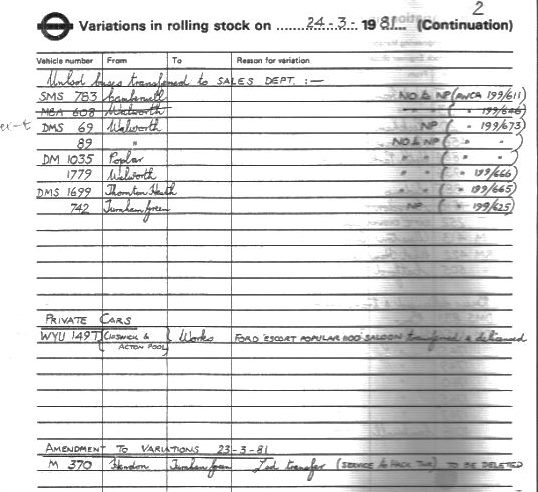 2
Variations in rolling stock on 24-3- 1981 (Continuation)
Vehicle number From To Reason for variation
Unlsd buses transferred to SALES DEPT. :—
SMS 783 Camberwell NO & NP (AWCA 199/611)
MBA 608 Walworth " " ( " 199/646)
DMS 69 Walworth NP ( " 199/673)
89 " NO & NP ( " " )
DM 1035 Poplar " " ( " " )
1779 Walworth " " ( " 199/666)
DMS 1699 Thornton Heath " " ( " 199/665)
742 Turnham Green NP ( " 199/625)
PRIVATE CARS
WYU 149T {CHISWICK & ACTON POOL} Works FORD 'ESCORT POPULAR 1100' SALOON transferred & delicensed
AMENDMENT TO VARIATIONS 23-3-81
M 370 Hendon Turnham Green Lsd transfer (SERVICE to HACK TWR) TO BE DELETED